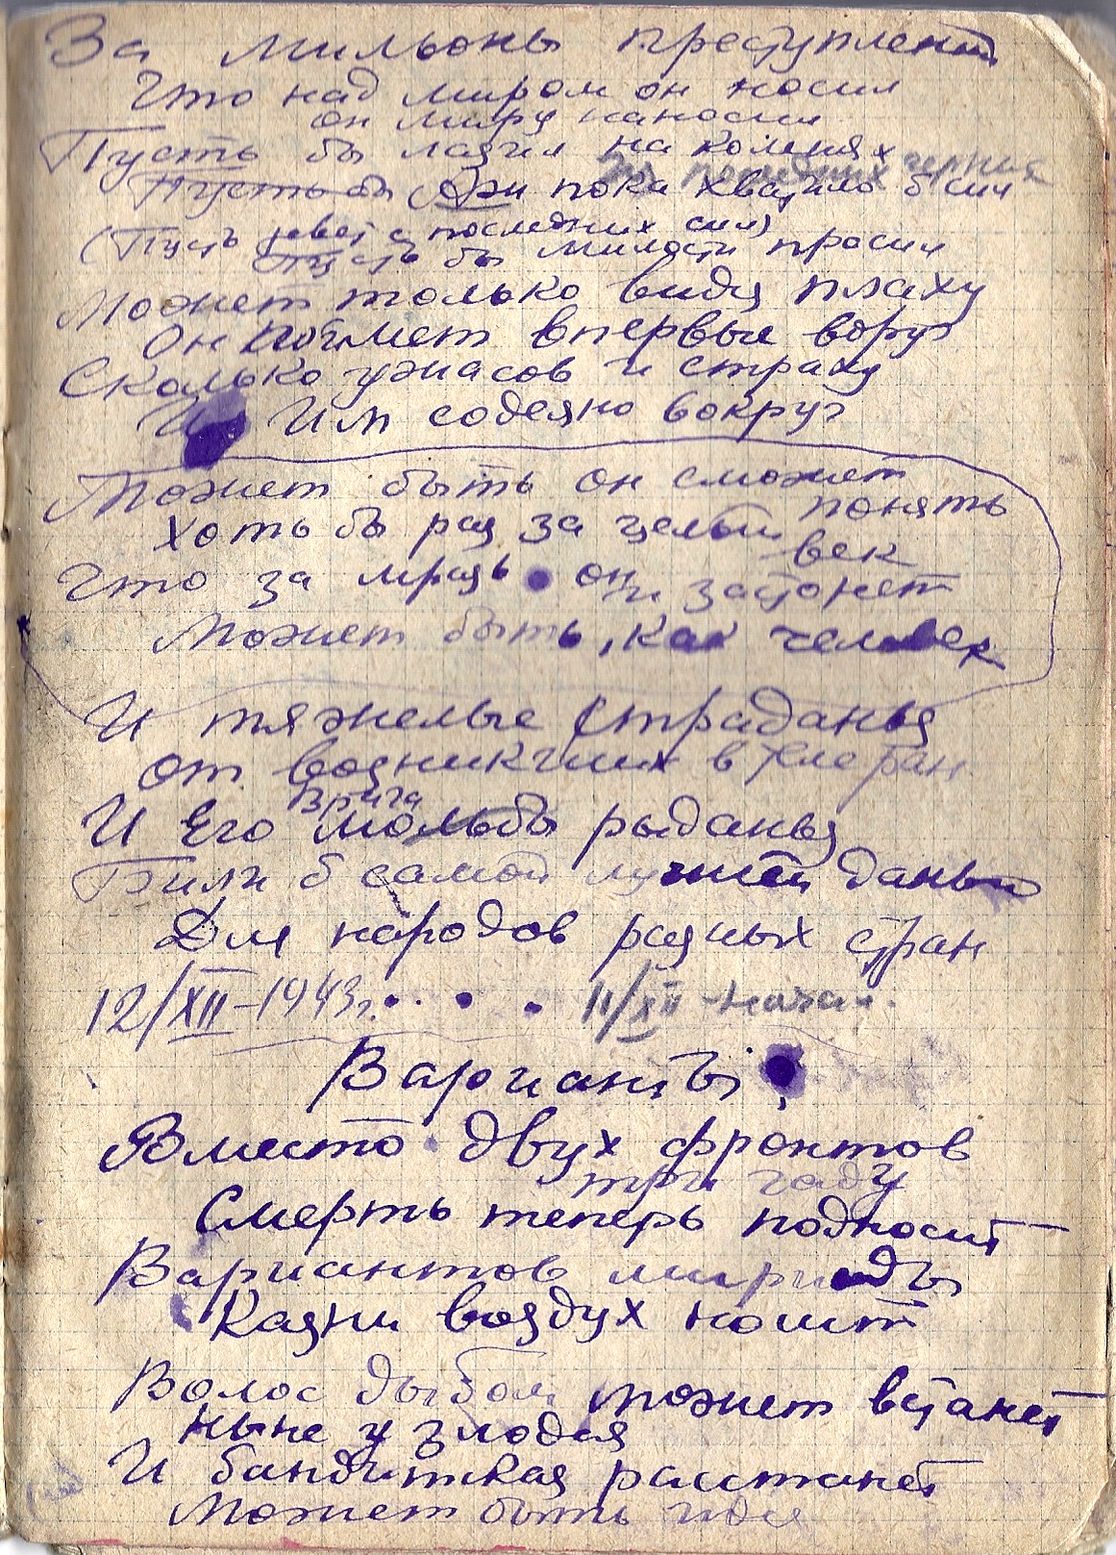 За мильоны преступлений
Что над миром он носил
он миру наносил
Пусть бы лазил на коленях
Пусть бы Он пока хватило б сил
(Пусть ревет с последних сил)
Пусть бы милости просил
Может только видя плаху
Он поймет впервые вдруг
Сколько ужасов и страху
Им содеяно вокруг
Может быть он сможет
понять
Хоть бы раз за целый
век
Что за мразь он
и застонет
Может быть, как человек
И тяжелые страданья
От возникших в теле ран
врага
И Его мольбы рыданья
Были б самой лучшей данью
Для народов разных стран
12/XII-1943г. . . . 11/XII-начал.
Варианты
Вместо двух фронтов
три гаду
Смерть теперь подносит
Вариантов мириады
Казни воздух носит
Волос дыбом может встанет
ныне у злодея
И бандитская растанет
Может быть идея